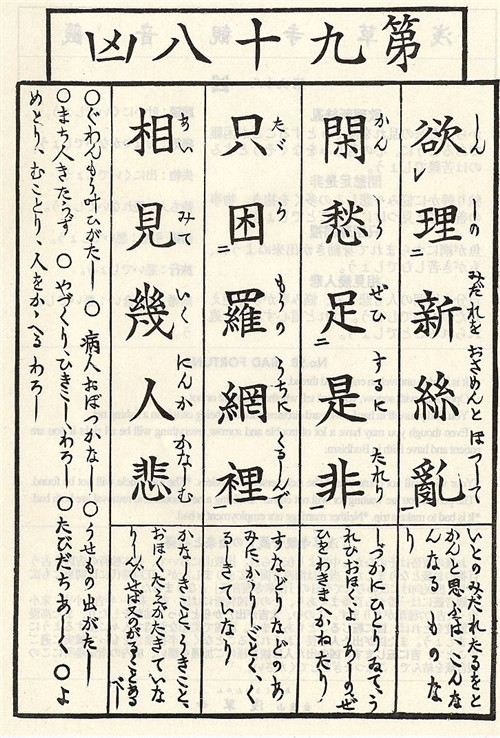 第九十八凶
欲レ理ニ新絲亂
しんしのみだれをおさめんとほつして
いとのみだれたるをと
かんと思ふは、こんな
んなるものな
り
閑愁足ニ是非
かんしうぜひするにたれり
しづかにひとりゐて、う
れひおほく、よしあしのぜ
ひをわきまへかねたり
只困ニ羅網裡
たゞらもうのうちにくるしんで
すなどりなどのあ
みにかゝりしごとく、く
るしきていなり
相見幾人悲
あいみていくにんかかなしむ
かなしきこと、くるしきこと、
おほくたえがたきていな
り
又のがるゝことある
べし
○ぐわんもう叶ひがたし ○病人おぼつかなし ○うせもの出がたし
○まち人きたらず ○やづくり、ひきこしわろし ○たびだちあしく ○よ
めとり、むことり、人をかゝへるわろし